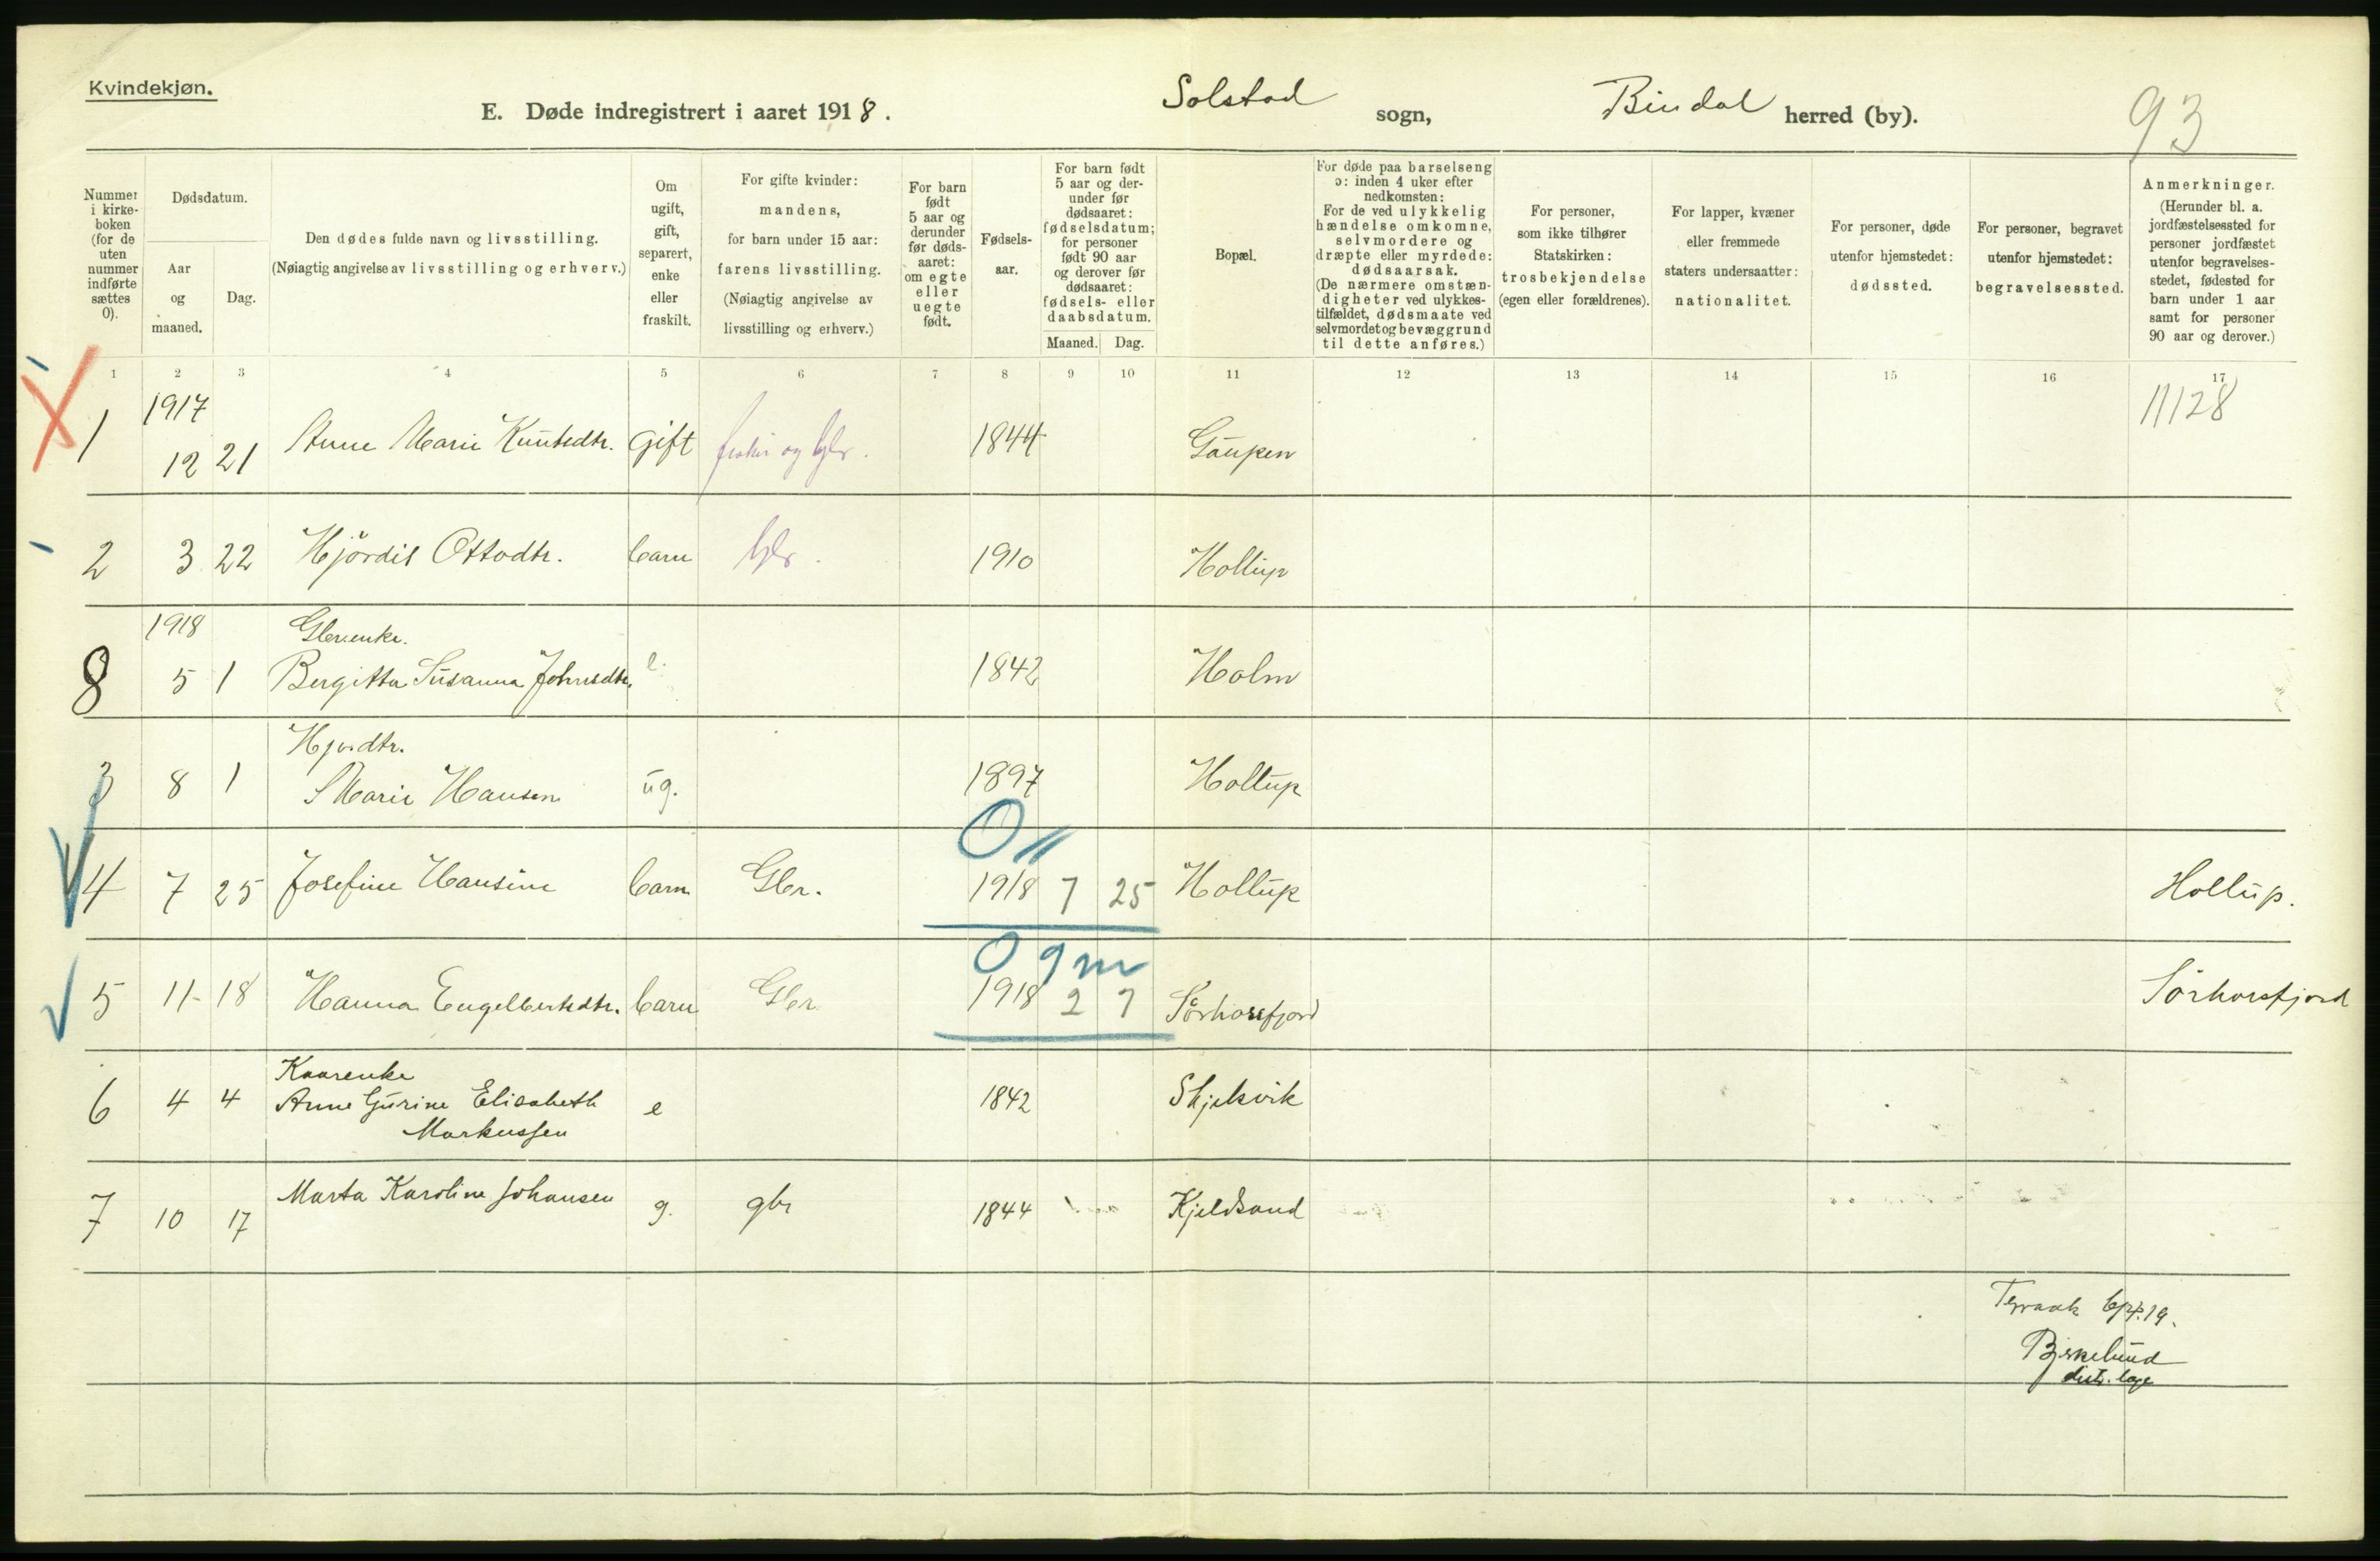 Kvindekjøn.
E. Døde indregistrert i aaret 1918.
Solstad sogn,
Bindal herred (by).
93
Nummer i kirke-boken (for de uten nummer indførte sættes 0).
Dødsdatum.
Aar og maaned.
Dag.
Den dødes fulde navn og livsstilling.
(Nøiagtig angivelse av livsstilling og erhverv.)
Om ugift, gift, separert, enke eller fraskilt.
For gifte kvinder: mandens, for barn under 15 aar: farens livsstilling. (Nøiagtig angivelse av livsstilling og erhverv.)
For barn født 5 aar og derunder før døds-aaret: om egte eller uegte født.
Fødsels-aar.
For barn født 5 aar og der-under før dødsaaret: fødselsdatum; for personer født 90 aar og derover før dødsaaret: fødsels- eller daabsdatum.
Maaned. Dag.
Bopæl.
For døde paa barselseng ɔ: inden 4 uker efter nedkomsten: For de ved ulykkelig hændelse omkomne, selvmordere og dræpte eller myrdede: dødsaarsak. (De nærmere omstæn-digheter ved ulykkes-tilfældet, dødsmaate ved selvmordet og bevæggrund til dette anføres.)
For personer, som ikke tilhører Statskirken: trosbekjendelse (egen eller forældrenes).
For lapper, kvæner eller fremmede staters undersaatter: nationalitet.
For personer, døde utenfor hjemstedet: dødssted.
For personer, begravet utenfor hjemstedet: begravelsessted.
Anmerkninger. (Herunder bl. a. jordfæstelsessted for personer jordfæstet utenfor begravelses-stedet, fødested for barn under 1 aar samt for personer 90 aar og derover.)
1 2 3 4 5 6 7 8 9 10 11 12 13 14 15 16 17
1917
11128
1 12 21 Anne Marie Knutsdtr. Gift og 1844 Gaupen
2 3 22 Hjördis Ottodtr. barn 1910 Hollup
1918 Gbr.enke.
8 5 1 Bergitta Susanna Johnsdtr. e. 1842 Holm
3 8 1 Marie Hansen ug. 1897 Hollup
0
4 7 25 Josefine Hansine barn Gbr. 1918 7 25 Hollup Hollup.
0 9 m
5 11 18 Hanna Engelbertsdtr. barn Gbr 1918 2 7 Sörhorsfjord Sörhorsfjord
Kaarenke
6 4 4 Anne Gurine Elisabeth e 1842 Skjelsvik
Markussen
7 10 17 Marta Karoline Johansen g. gbr 1844 Kjeldsand
Terraak
Bjerkelund
distr. læge